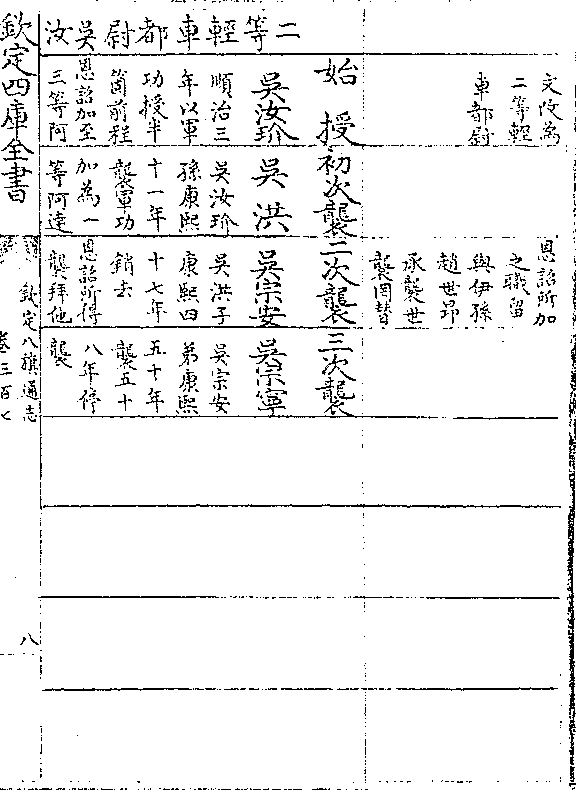 文改為
二等輕
車都尉
恩詔所加
之職留
與伊孫
趙世昂
承襲世
襲罔替
二等輕車都尉吳汝
始授
吳汝玠
順治三
年以軍
功授半
箇前程
恩詔加至
三等阿
初次襲
吳洪
吳汝玠
孫康熙
十一年
襲軍功
加為一
等阿達
二次襲
吳宗安
吳洪子
康熙四
十七年
銷去
恩詔所得
襲拜他
三次襲
吳宗寧
吳宗安
弟康熙
五十年
襲五十
八年停
襲
欽定四庫全書
欽定八旗通志
卷三百七
八